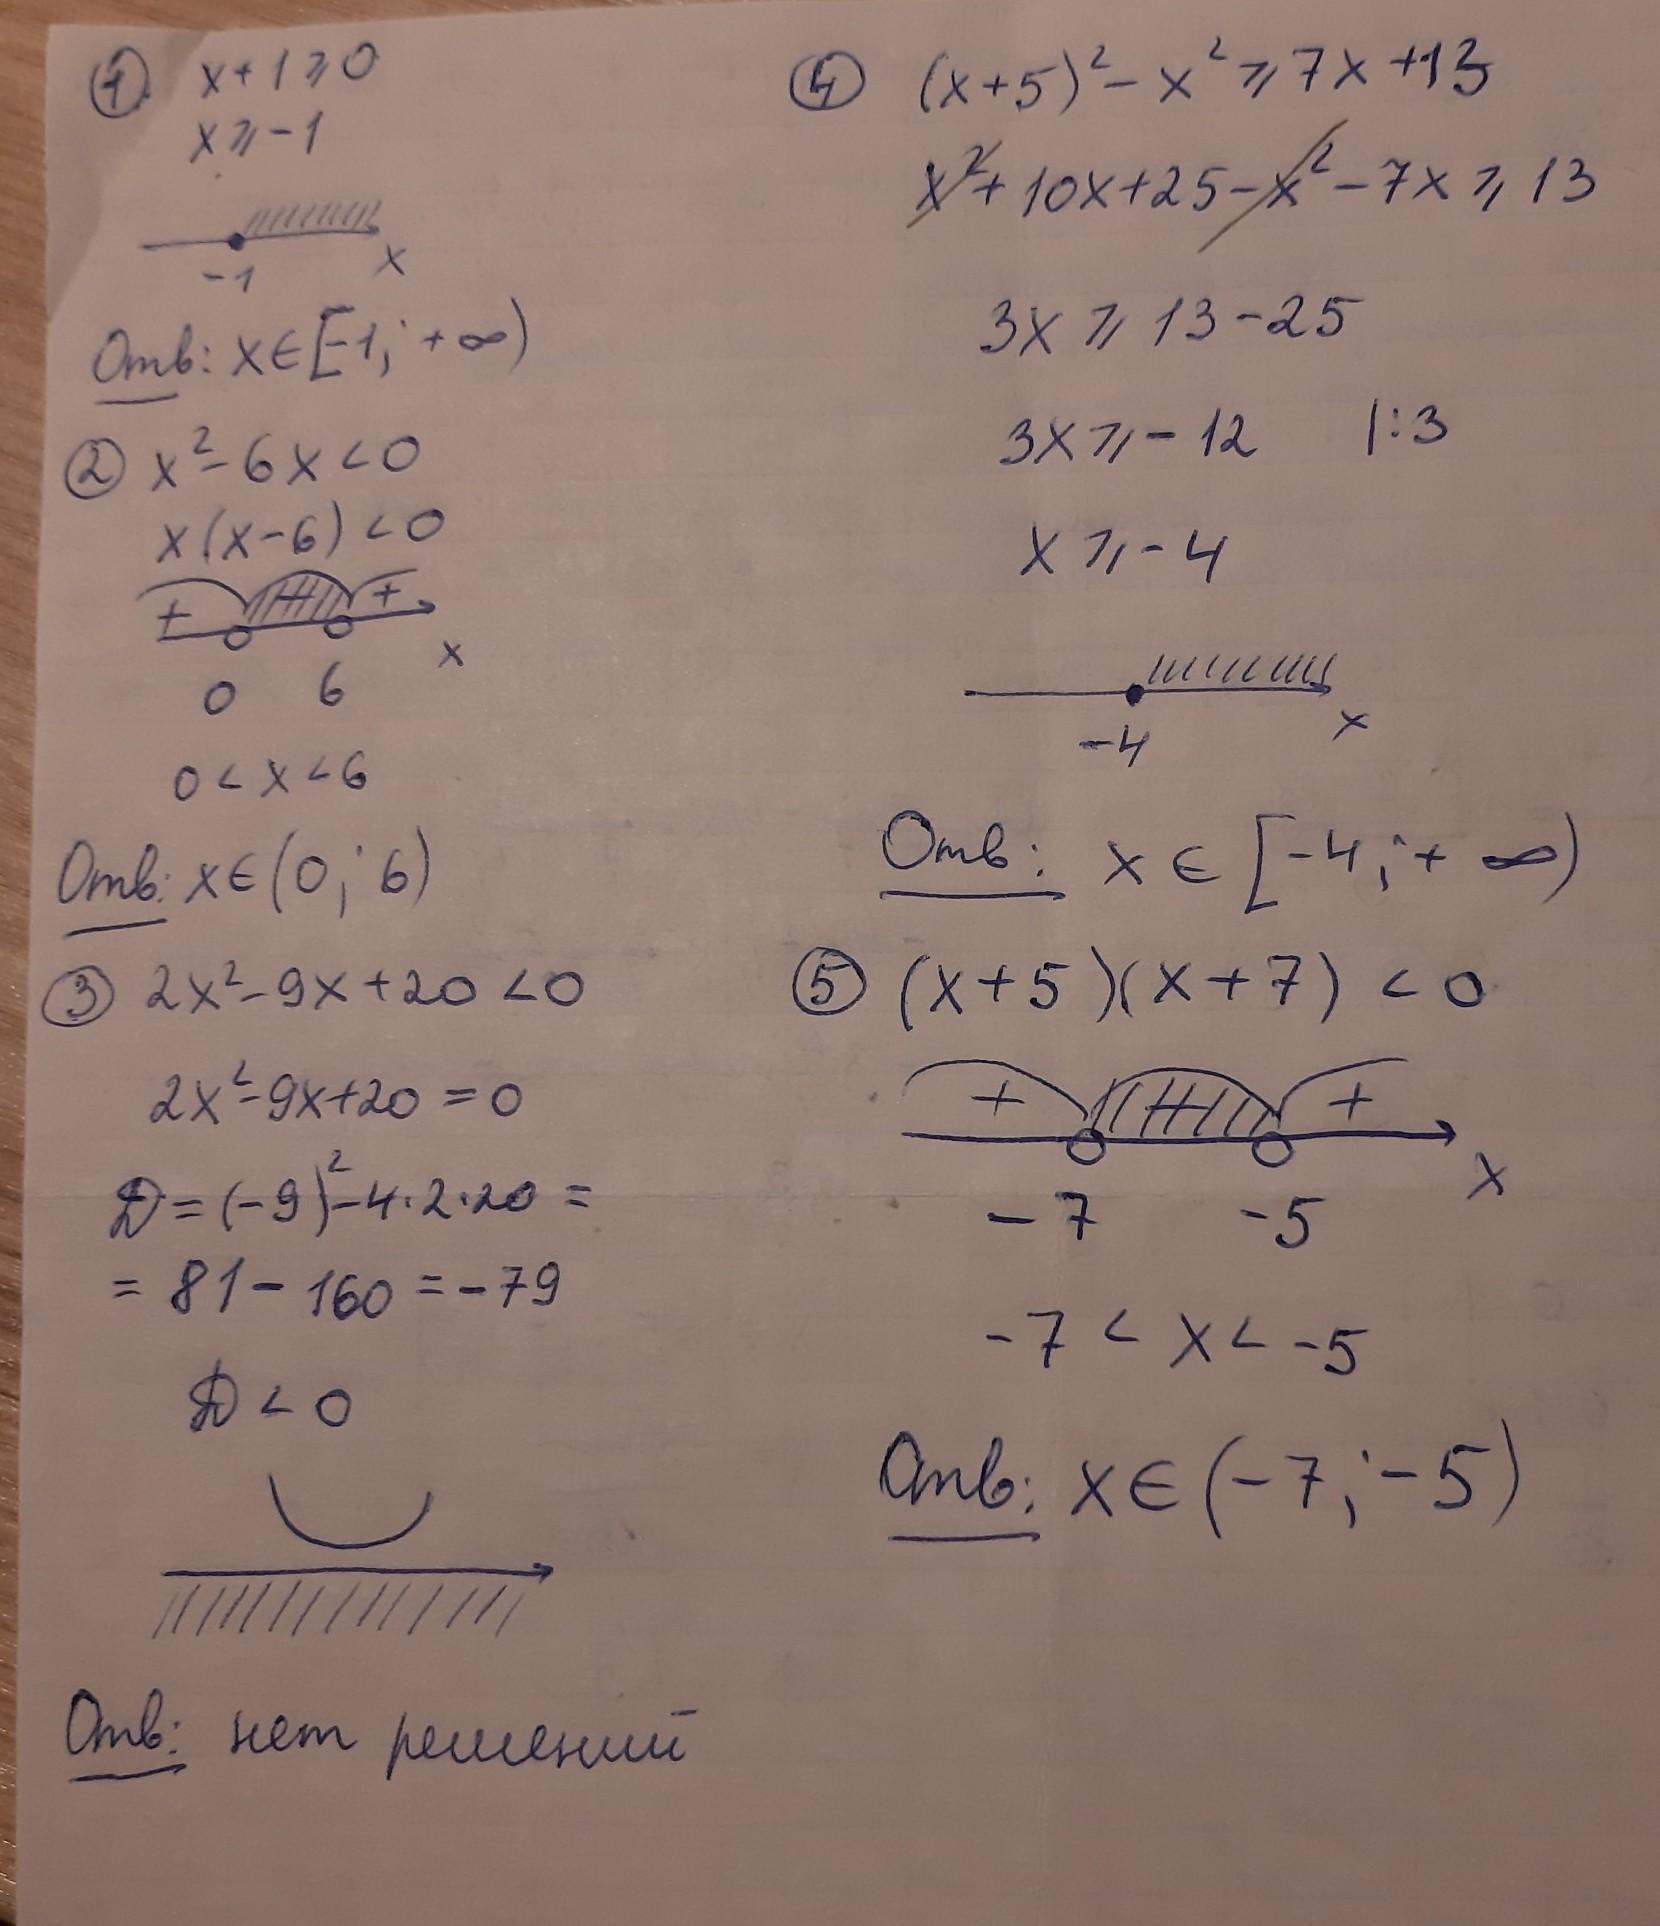 ① x+1⩾0
x⩾-1
-1 x
Отв: x∈[-1; +∞)
② x²-6x<0
x(x-6)<0
+ - +
x
0 6
0<x<6
Отв: x∈(0; 6)
③ 2x²-9x+20<0
2x²-9x+20=0
D=(-9)²-4·2·20=
=81-160=-79
D<0
Отв: нет решений
④ (x+5)²-x²⩾7x+13
x²+10x+25-x²-7x⩾13
3x⩾13-25
3x⩾-12 |:3
x⩾-4
-4 x
Отв: x∈[-4; +∞)
⑤ (x+5)(x+7)<0
+ - +
-7 -5 x
-7<x<-5
Отв: x∈(-7; -5)